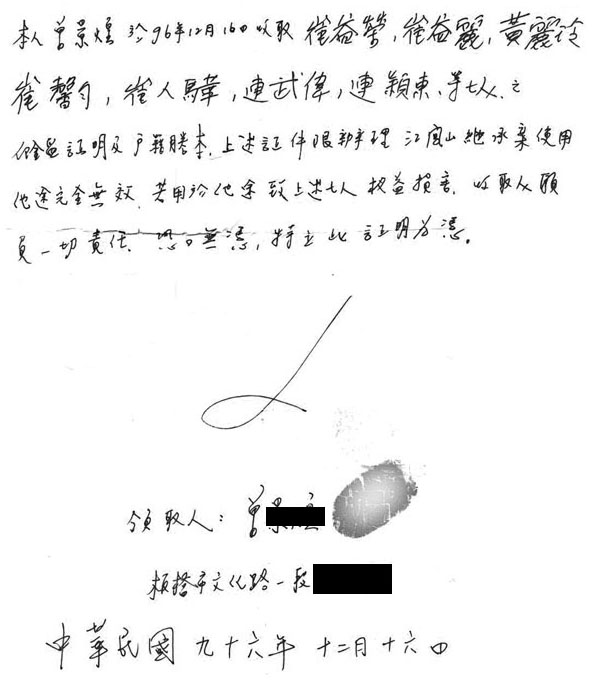 本人曾景煌於96年12月16日收取崔益榮,崔益麗,黃麗玲
崔馨勻,崔人驊,連武偉,連穎東,等七人之
印鑑証明及戶籍謄本,上述証件限辦理江鳳山繼承案使用
他途完全無效,若用於他途致上述七人权益損害,收取人願
負一切責任,恐口無憑,特立此証明為憑。
領取人:曾
板橋市文化路一段
中華民國九十六年十二月十六日